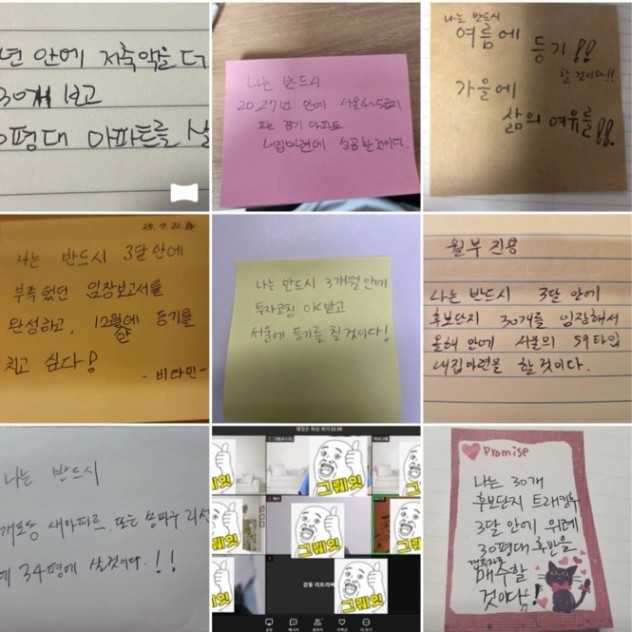 년 안에 저축액을 더
30개 보고
평대 아파트를 살
나는 반드시
2027년 안에 서울4~5급지
또는 경기 아파트
내집마련에 성공한것이다.
나는 반드시
여름에
등기!!
할 것이다!!
가을에
삶의 여유를!!
나는 반드시 3달 안에
부족했던 임장보고서를
완성하고, 12월에 등기를
치고 싶다!
- 비타민 -
나는 반드시 3개월 안에
투자코칭 OK받고
서울에 등기를 칠 것이다!
월부 진봉
나는 반드시 3달 안에
후보단지 30개를 임장해서
올해 안에 서울의 59타입
내집마련을 할 것이다.
나는 반드시
새아파트 또는 송파구
34평에 살것이다.!!
그뤠잇
그뤠잇
그뤠잇
그뤠잇
그뤠잇
Promise
나는 30개
후보단지 트래킹후
3달 안에 위례
30평대 후반을
매수할
것이다!